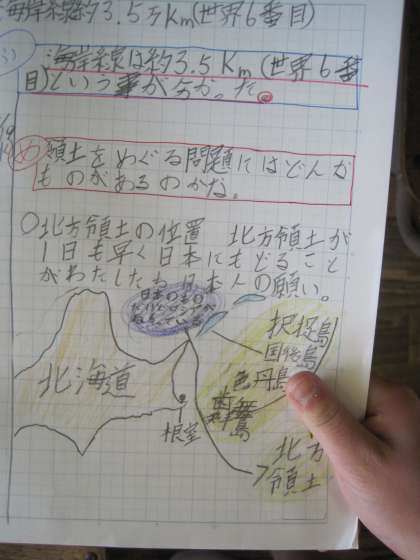 海岸線約3.5万Km(世界6番目)
海岸線は約3.5Km(世界6番
目)という事が分か。た。
め 領土をめぐる問題にはどんな
ものがあるのかな。
○北方領土の位置 北方領土が
1日も早く日本にもどること
がわたしたち日本人の願い。
日本のもの
北海道
択捉島
国後島
色丹島
歯舞
島
根室
北方
領土